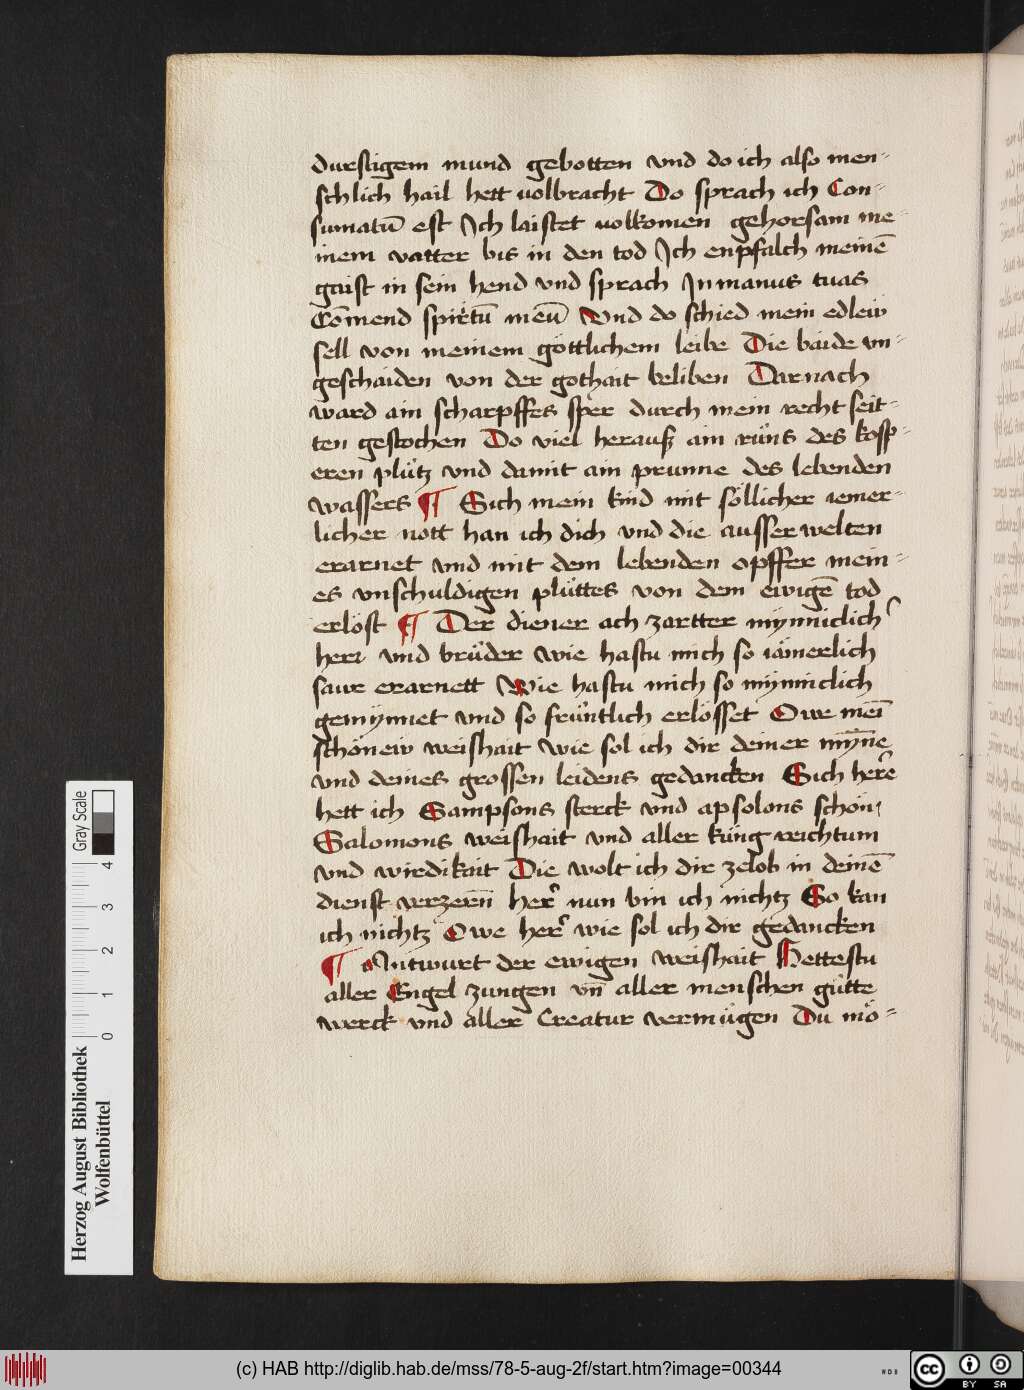 durstigem mund gebotten vnd do ich also men-
schlich hail hett volbracht Do sprach ich Con-
sumatū est Ich laistet volkomen gehorsam me-
inem vatter bis in den tod Ich enpfalch meinē
gaist in sein hend vnd sprach In manus tuas
Cōmend spiritū meū Vnd do schied mein edlew
sell von meinem göttlichem leibe Die baide vn-
geschaiden von der gothait beliben Darnach
ward ain scharpffes sper durch mein recht seit-
ten gestochen Do viel herauß ain rüns des kosp-
eren plütz vnd damit ain prunne des lebenden
wassers ¶ Sich mein kind mit söllicher iemer-
licher nott han ich dich vnd die ausserwelten
erarnet vnd mit dem lebenden opffer mein-
es vnschuldigen plüttes von dem ewigē tod
erlöst ¶ Der diener ach zartter mynniclich
herr vnd brüder wie hastu mich so iämerlich
saur erarnett Wie hastu mich so mynniclich
gemynnet vnd so früntlich erlösset Owe meī
schönew weishait wie sol ich dir deiner mȳne
vnd deines grossen leidens gedancken Sich here
hett ich Sampsons sterck vnd apsolons schön
Salomons weishait vnd aller küng reichtum
vnd wirdikait Die wolt ich dir zelob in deinē
dienst verzern̄ her nun bin ich nichtz So kan
ich nichtz Owe her wie sol ich dir gedancken
¶ Antwurt der ewigen weishait Hettestu
aller Engel zungen vn̄ aller menschen gütte
werck vnd aller Creatur vermügen Du mö-
Herzog August Bibliothek
Wolfenbüttel
0 1 2 3 4
Gray Scale
(c) HAB http://diglib.hab.de/mss/78-5-aug-2f/start.htm?image=00344
WDB
cc BY SA